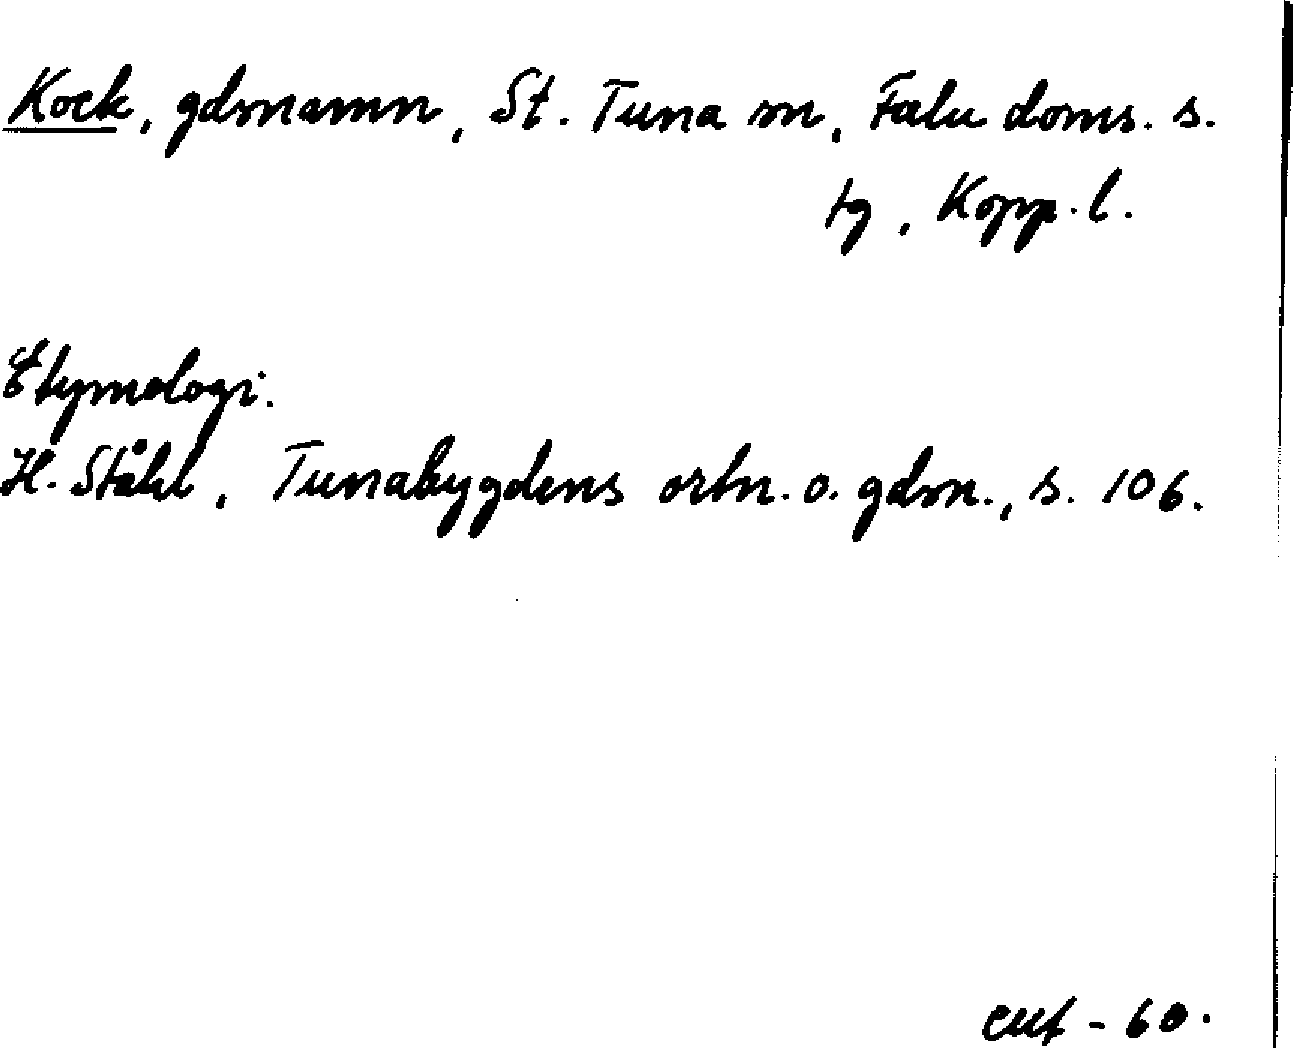 Kock, gdsnamn, St. Tuna sn, Falu doms. s.
tg, Kopp. l.
Etymologi.
H. Ståhl, Tunabygdens ortn. o. gdsn., s. 106.
- 60.